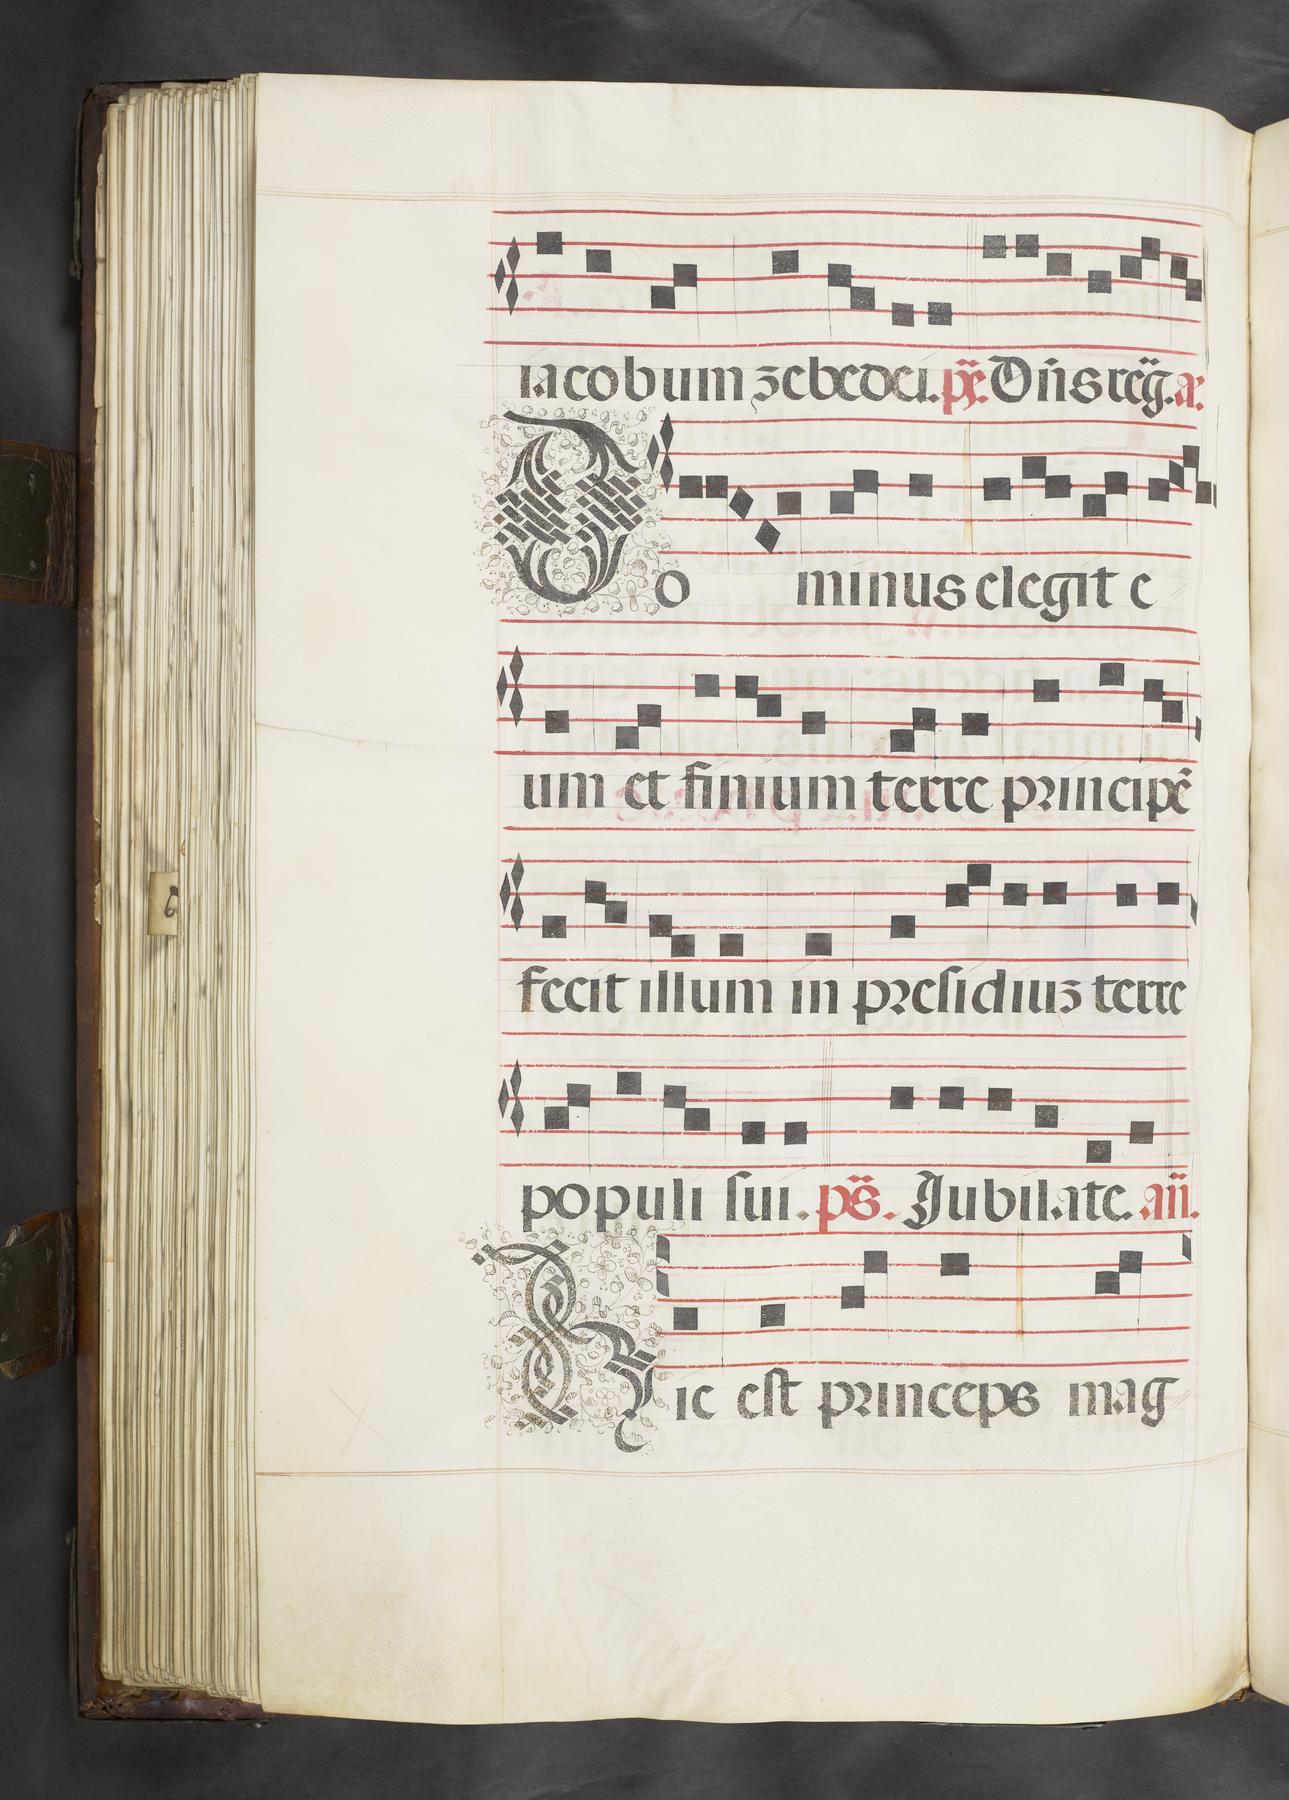 iacobum zebedei. ps̈. Dn̄s reg̈. a.
Do minus elegit e
um et finium terre principē
fecit illum in presidiuz terre
populi sui. ps̈. Jubilate. an̈.
Hic est princeps mag
6